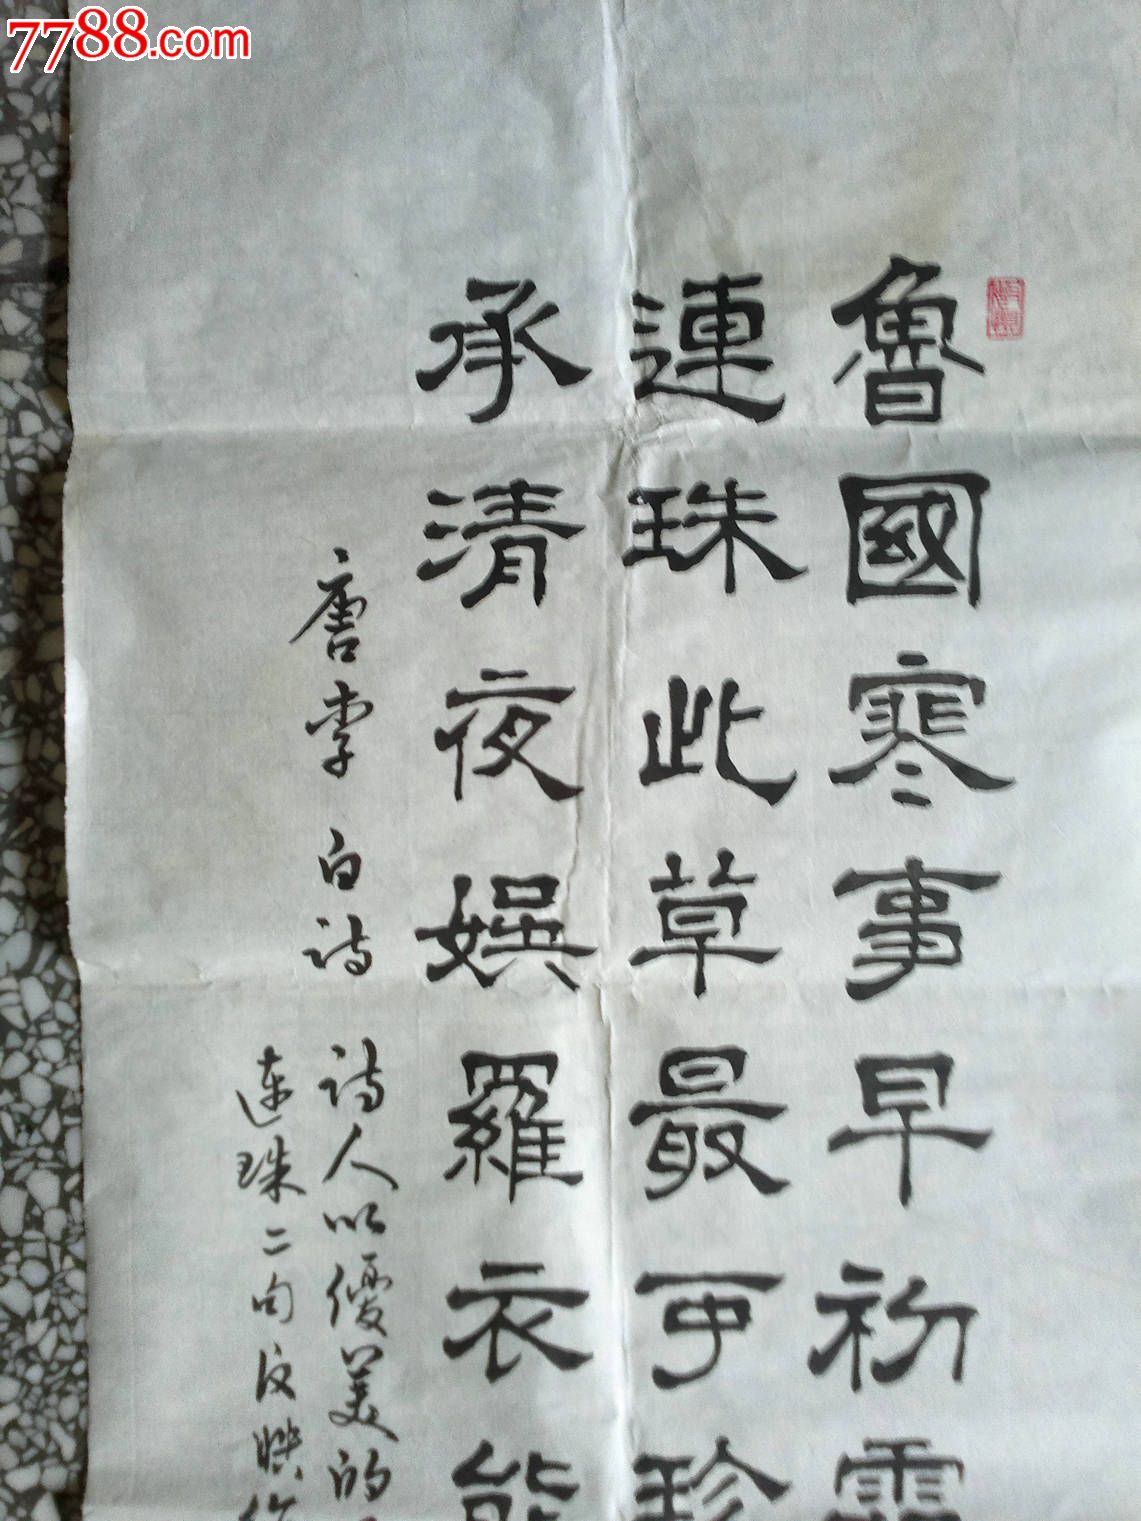 7788.com
魯國寒事早初霜
連珠此草最可珍
承清夜娛羅衣能
唐李白詩
诗人以優美的
连珠二句反映